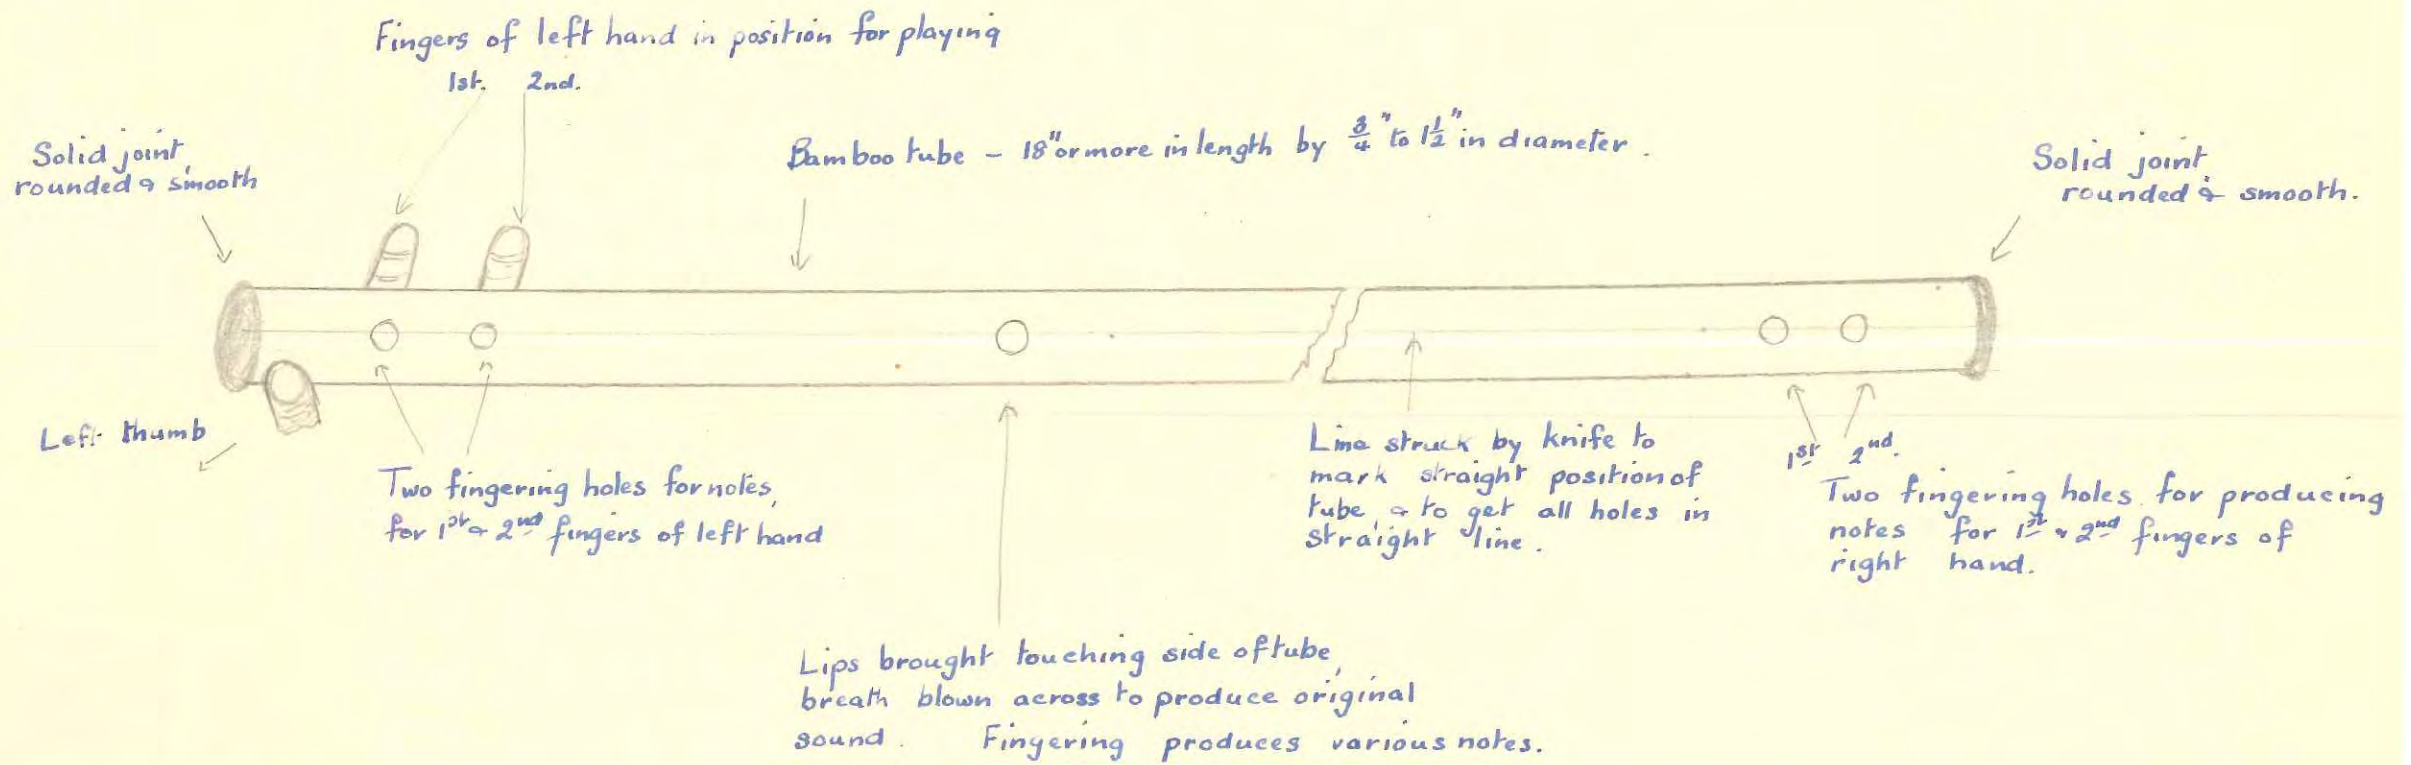 Fingers of left hand in position for playing
1st. 2nd.
Solid joint,
rounded & smooth
Bamboo tube - 18" or more in length by 3/4" to 1 1/2" in diameter.
Solid joint
rounded & smooth.
Left thumb
Two fingering holes for notes,
for 1st & 2nd fingers of left hand
Line struck by knife to
mark straight position of
tube, & to get all holes in
straight line.
1st 2nd.
Two fingering holes for producing
notes for 1st & 2nd fingers of
right hand.
Lips brought touching side of tube,
breath blown across to produce original
sound. Fingering produces various notes.